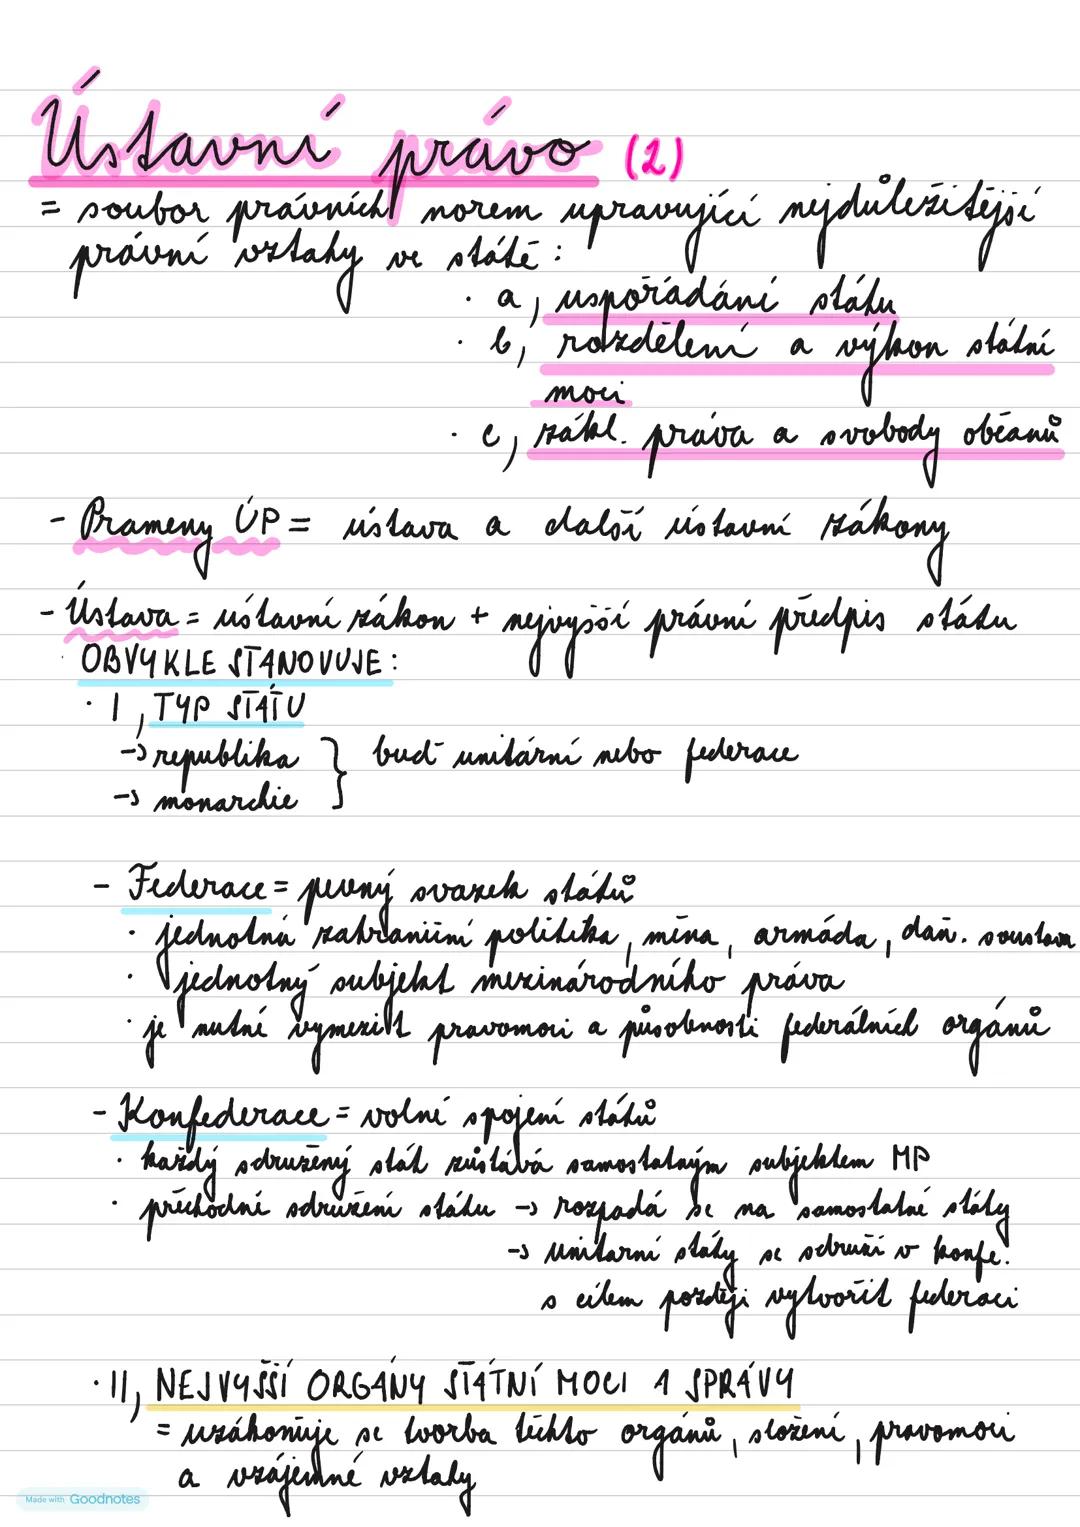 Ústavní právo (2)
= soubor právních norem upravující nejdůležitější
právní vztahy ve státě:
· a, uspořádání státu
· b, rozdělení a výkon státní
moci
· c, zákl. práva a svobody občanů
- Prameny ÚP = ústava a další ústavní zákony
- Ústava = ústavní zákon + nejvyšší právní předpis státu
· OBVYKLE STANOVUJE:
· I, TYP STÁTU
→ republika } buď unitární nebo federace
→ monarchie
- Federace = pevný svazek států
· jednotná zahraniční politika, měna, armáda, daň. soustava
· jednotný subjekt mezinárodního práva
· je nutné vymezit pravomoci a působnosti federálních orgánů
- Konfederace = volné spojení států
· každý sdružený stát zůstává samostatným subjektem MP
· přechodné sdružení státu → rozpadá se na samostatné státy
→ unitární státy se sdruží v konfe.
s cílem později vytvořit federaci
· II, NEJVYŠŠÍ ORGÁNY STÁTNÍ MOCI A SPRÁVY
= uzákoňuje se tvorba těchto orgánů, složení, pravomoci
a vzájemné vztahy
Made with Goodnotes